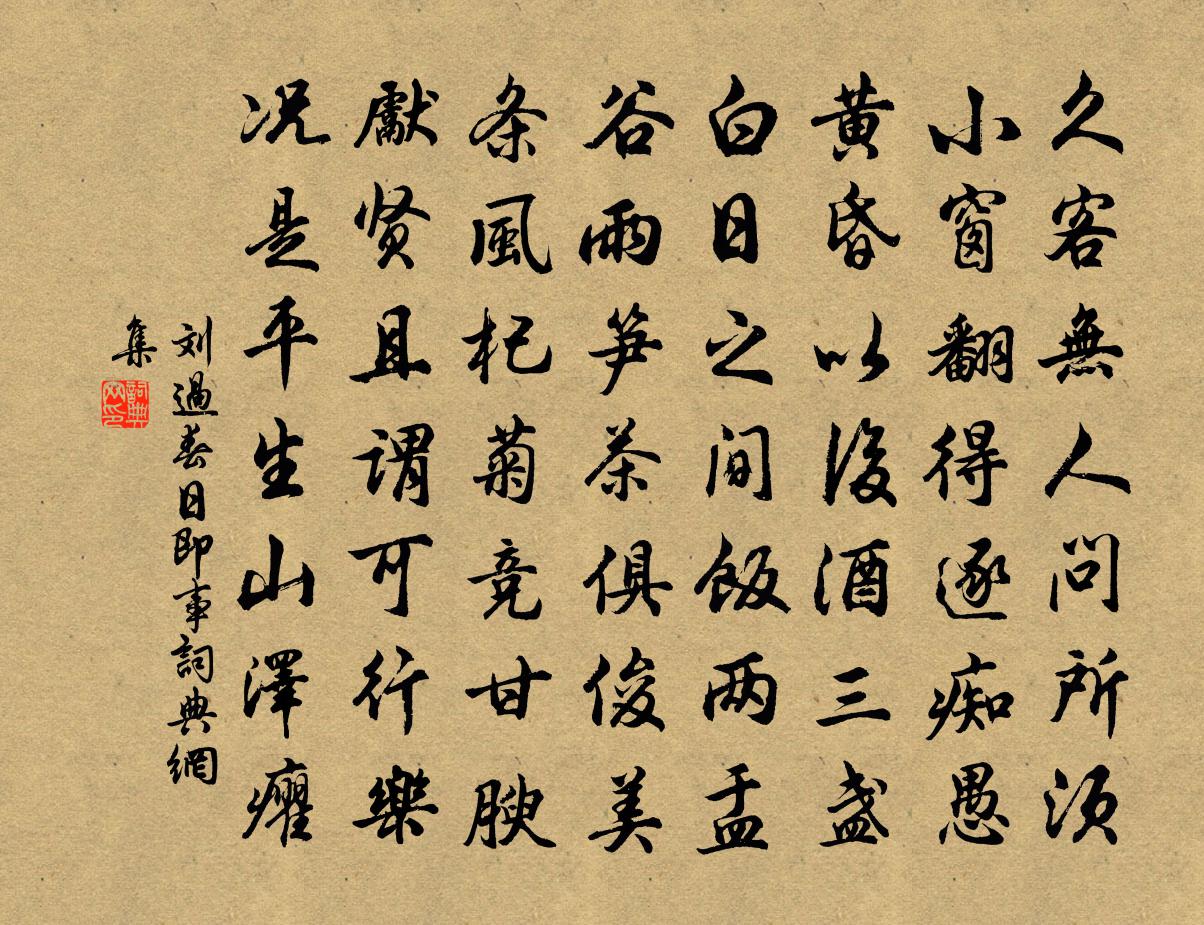 久客無人問所須
小窗翻得逐痴愚
黄昏以後酒三盏
白日之間飯两盂
谷雨笋茶俱俊美
条風杞菊竞甘腴
獻贤且謂可行樂
况是平生山澤癯
刘過春日即事詞典網
集
詞典
网印